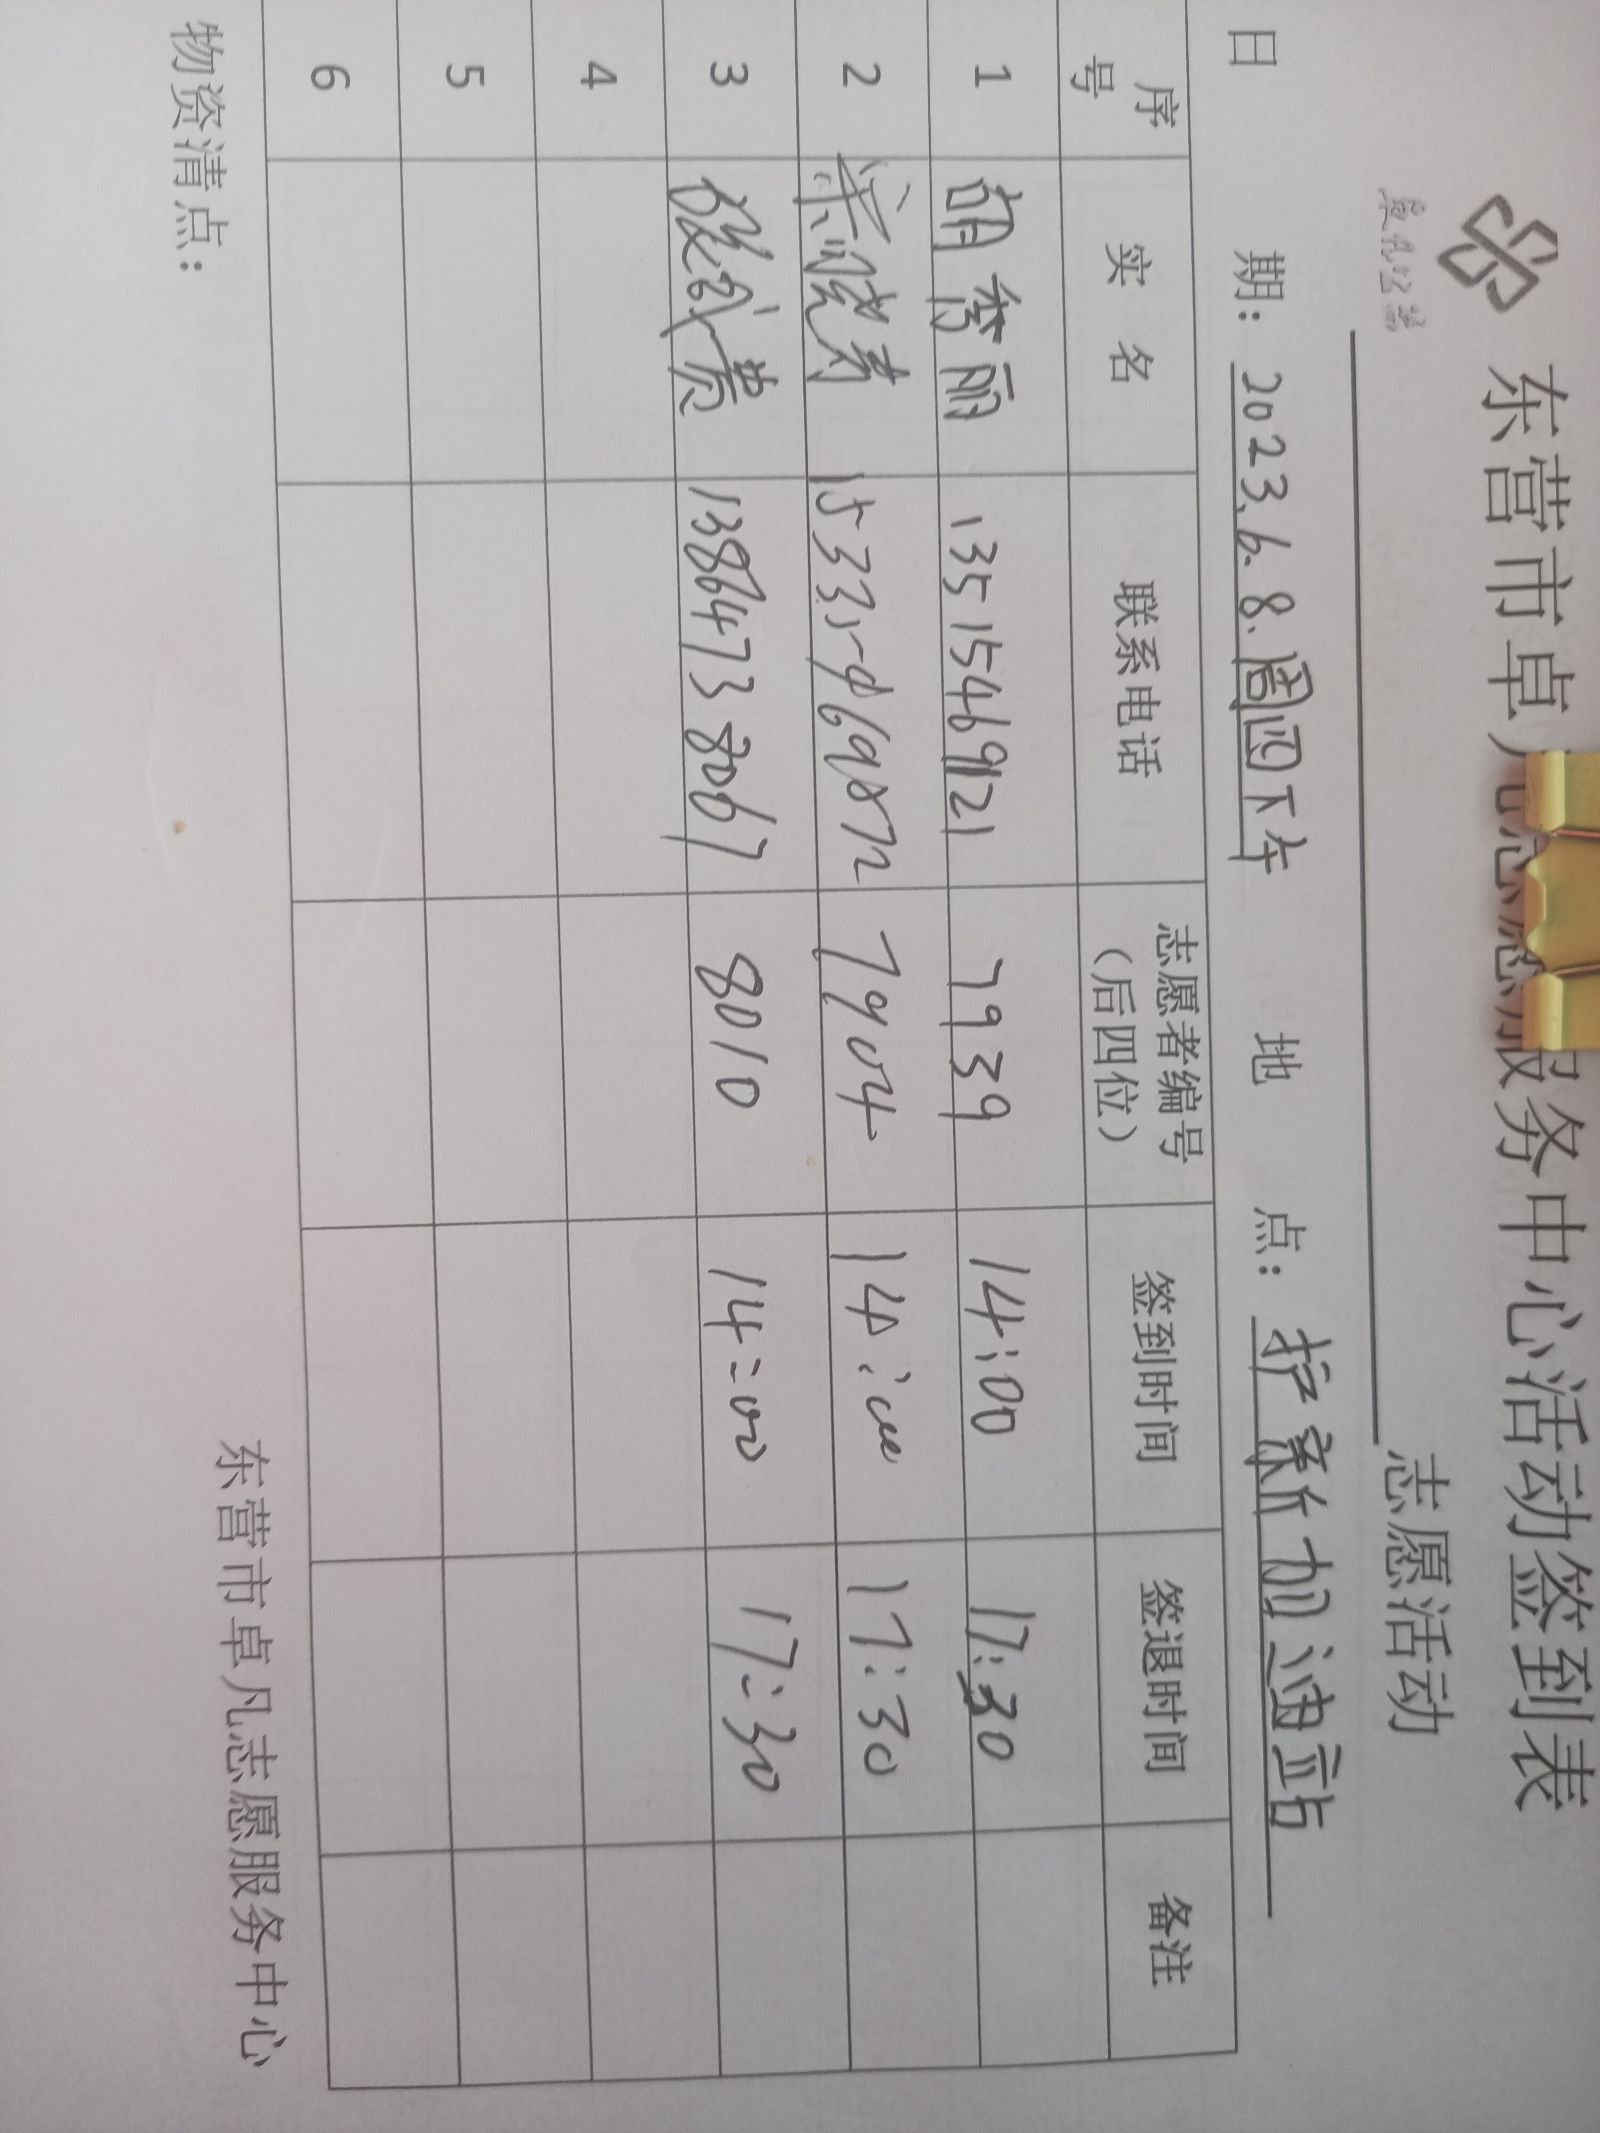 东营市卓凡志愿服务中心活动签到表
卓凡公益
志愿活动
日 期: 2023.6.8.周四下午 地 点: 护新加油站
序号 实 名 联系电话 志愿者编号(后四位) 签到时间 签退时间 备注
1 胡秀丽 13515469121 7939 14:00 17:30
2 7904 14:00 17:30
3 13864738067 8010 14:00 17:30
4
5
6
物资清点:
东营市卓凡志愿服务中心